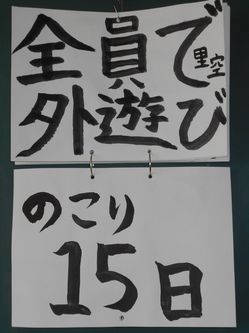 全員で
外遊び
里空
のこり
15日